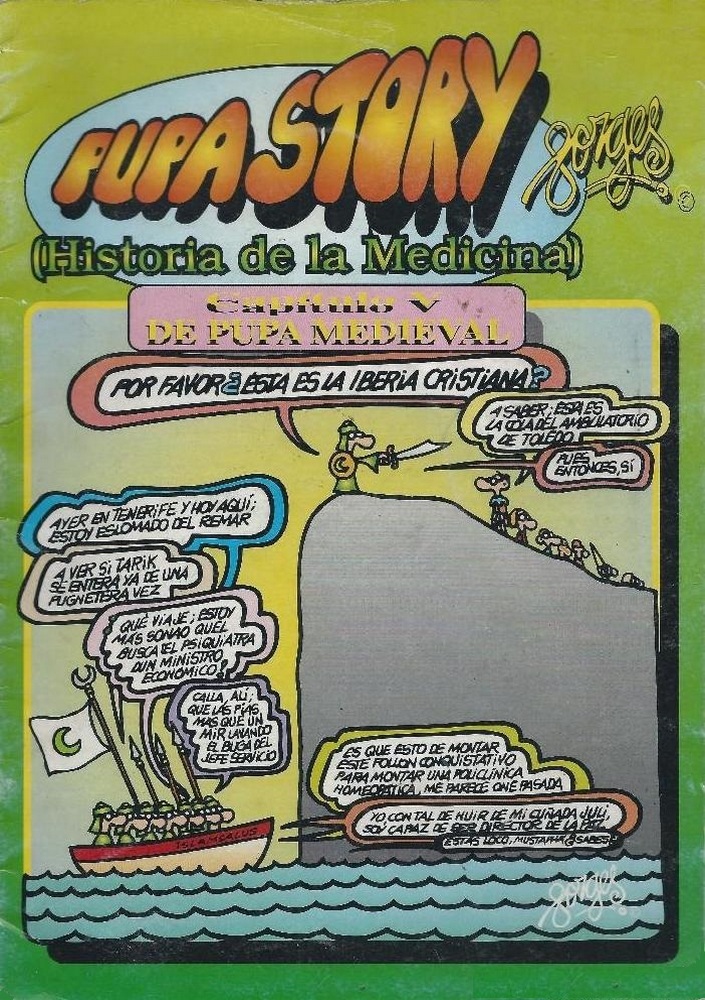 PUPA STORY
gorges
(Historia de la Medicina)
Capítulo V
DE PUPA MEDIEVAL
POR FAVOR ¿ ÉSTA ES LA IBERIA CRISTIANA?
A SABER; ÉSTA ES
LA COLA DEL AMBULATORIO
DE TOLEDO
PUES
ENTONCES, SÍ
AYER EN TENERIFE Y HOY AQUÍ;
ESTOY ESLOMADO DEL REMAR
A VER SI TARIK
SE ENTERA YA DE UNA
PUGNETERA VEZ
QUÉ VIAJE; ESTOY
MÁS SONAO QUEL
BUSCA'EL PSIQUIATRA
DUN MINISTRO
ECONÓMICO!
CALLA, ALÍ,
QUE LAS PÍAS,
MÁS QUE UN
MIR LAVANDO
EL BUGA DEL
JEFE SERVICIO
ES QUE ESTO DE MONTAR
ESTE FOLLON CONQUISTATIVO
PARA MONTAR UNA POLICLÍNICA
HOMEOPÁTICA, ME PARECE ONE PASADA
YO CON TAL DE HUIR DE MI CUÑADA JULI,
SOY CAPAZ DE SER DIRECTOR DE LA PAZ
ESTÁS LOCO, MUSTAPHA ¿SABES?
ISLAMSALUS
gorges